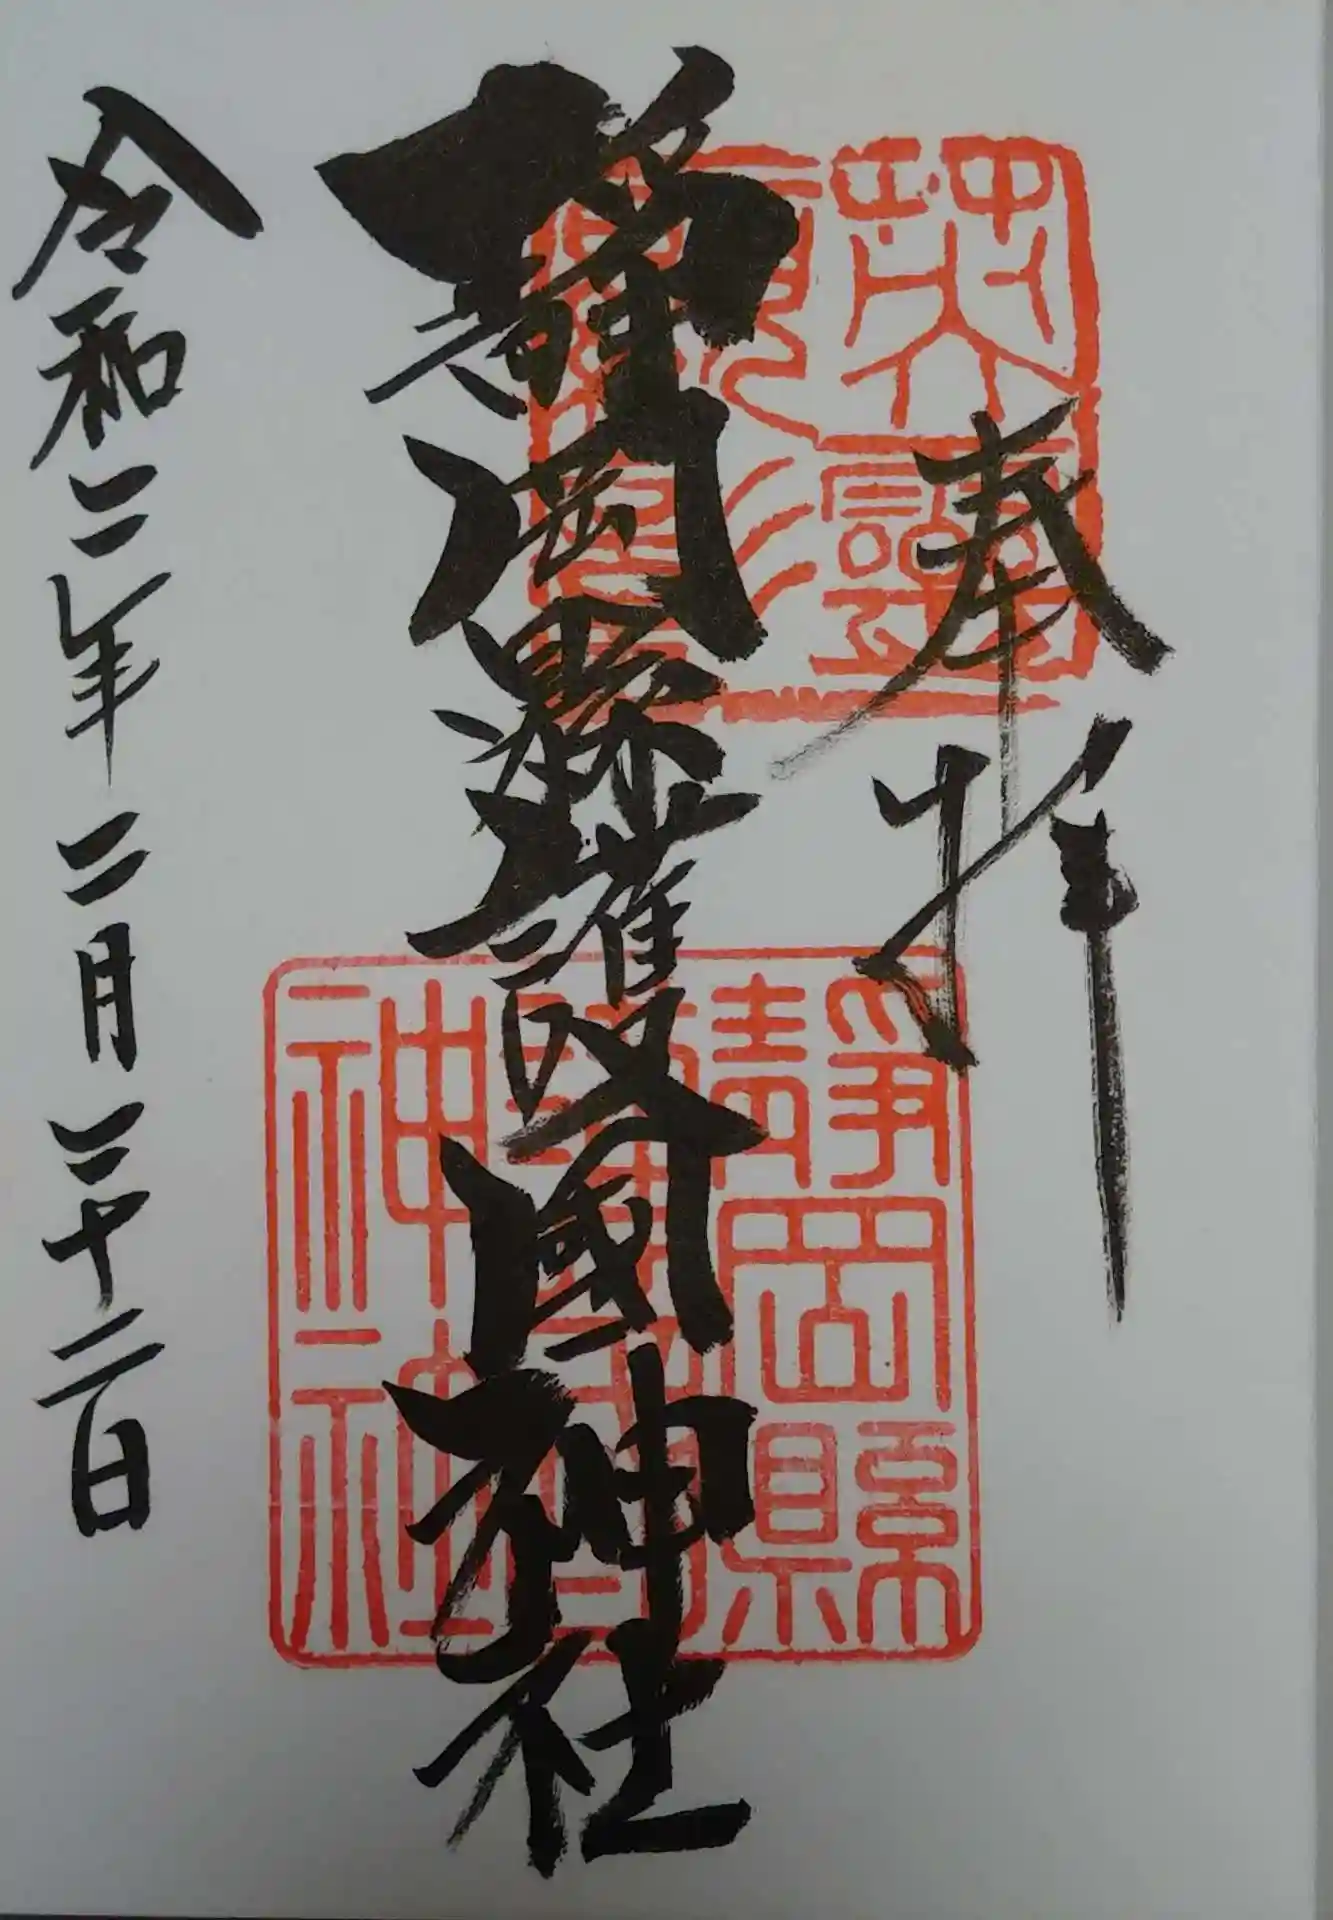 奉拝
英靈
顯彰
靜岡縣護國神社
靜岡縣
護國
神社
令和二年二月二十二日